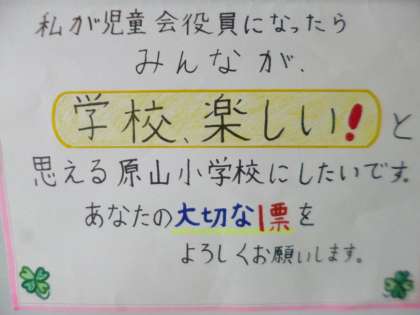 私が児童会役員になったら
みんなが、
学校、楽しい!と
思える原山小学校にしたいです。
あなたの大切な1票を
よろしくお願いします。